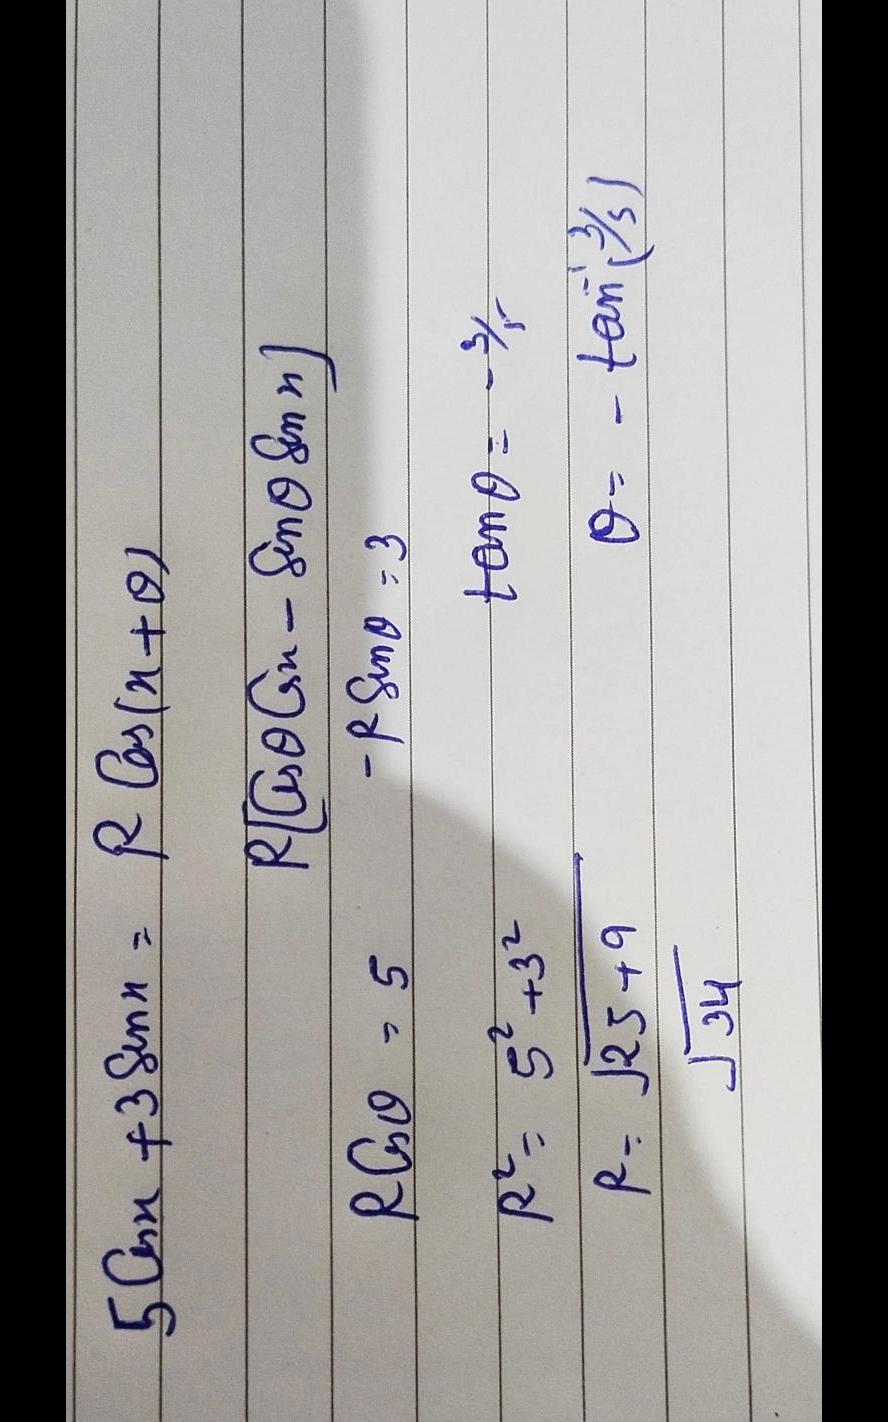 5 Cos x + 3 Sin x = R Cos(x + θ)
R[Cosθ Cos x - Sinθ Sin x]
R Cosθ = 5 - R Sinθ = 3
R² = 5² + 3² tanθ = - 3/5
R = √25 + 9 θ = - tan⁻¹(3/5)
√34